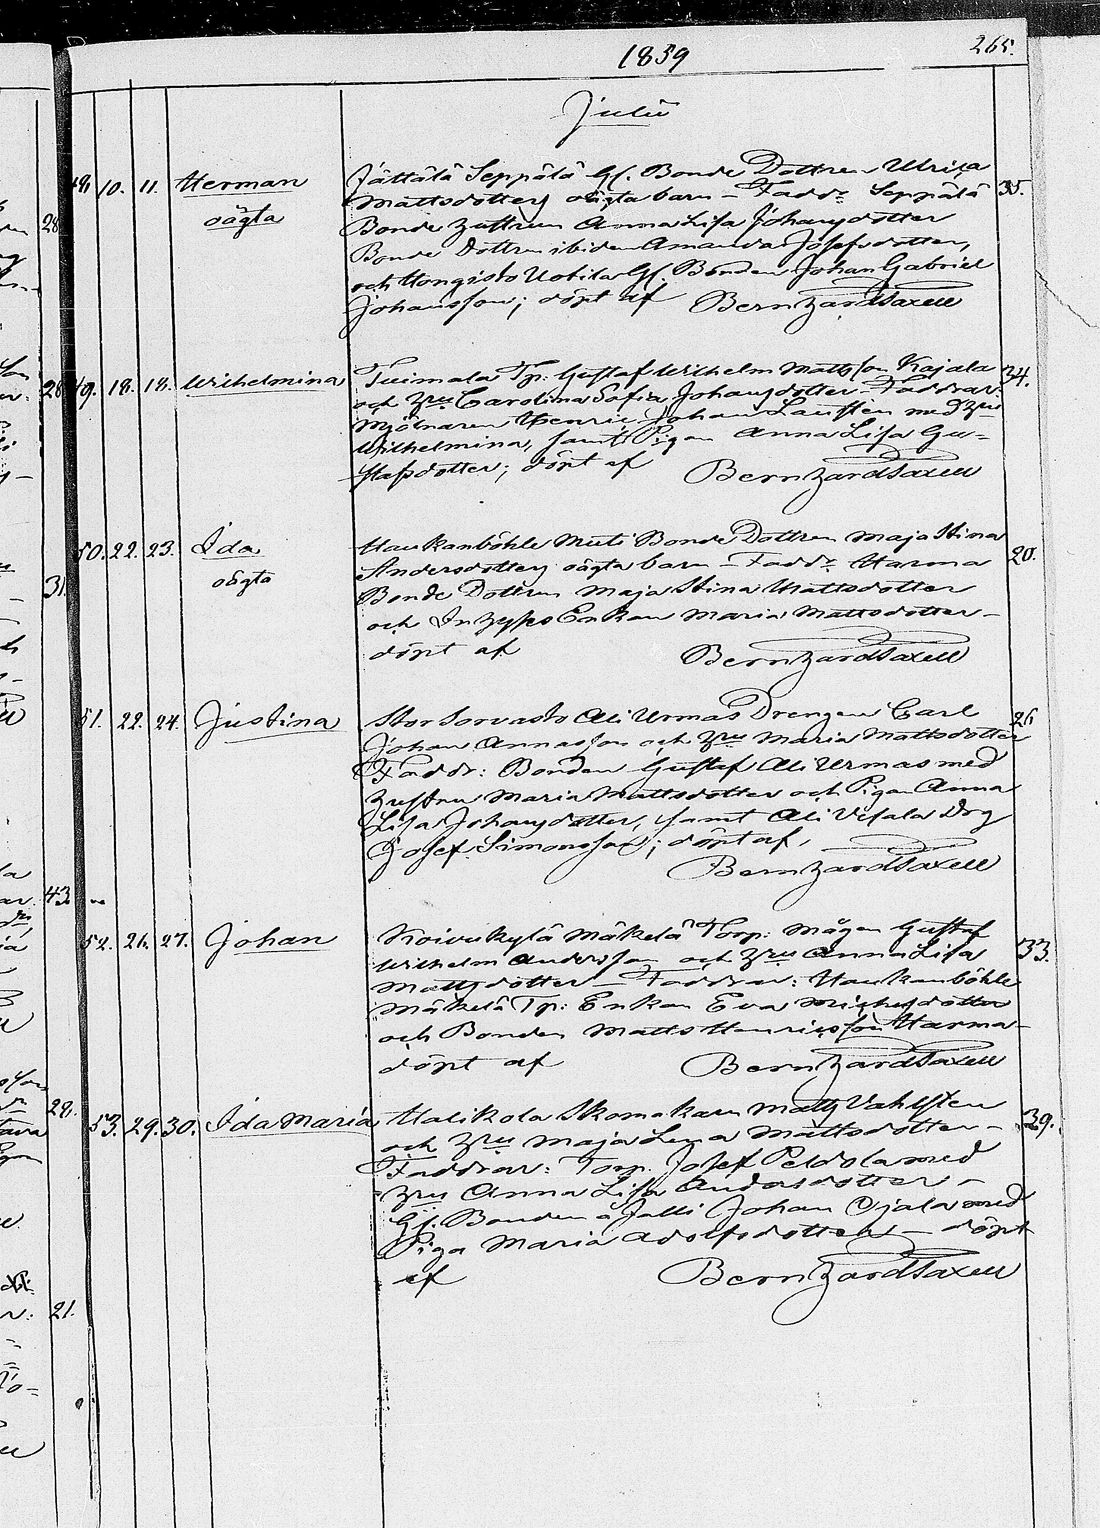 1839 265.
Julii
48. 10. 11. Herman Jättälä Seppälä Gl. Bonde Dottren Ulrica 35.
oägta Mattsdotters oägta barn – Fadd: Seppälä
Bonde hustrun Anna Lisa Johansdotter
Bonde Dottren ibiden Amanda Josefsdotter,
och Hongisto Uotila Gl. Bonden Johan Gabriel
Johansson; döpt af Bernhard Saxell
49. 18. 18. Wilhelmina Tuimala Tp: Gustaf Wilhelm Mattsson Kajala 34.
och hru Carolina Sofia Johansdotter – Faddrar:
Mjölnaren Henric Johan Laustén med hru
Wilhelmina, samt Pigan Anna Lisa Gu-
stafsdotter; döpt af Bernhard Saxell
50. 22. 23. Ida Haukanböhle Muti Bonde Dottren Maja Stina 20.
oägta Andersdotters oägta barn – Fadd: Harma
Bonde Dottren Maja Stina Mattsdotter
och Inhyses Enkan Maria Mattsdotter –
döpt af Bernhard Saxell
51. 22. 24. Justina Stor Sorvasto Ali Urmas Drengen Carl 26
Johan Annasson och hru Maria Mattsdotter
Faddr: Bonden Gustaf Ali Urmas med
hustru Maria Mattsdotter och Pigan Anna
Lisa Johansdotter, samt Ali Vesala Drg
Josef Simonsson; döpt af,
Bernhard Saxell
52. 26. 27. Johan Koivukylä Mäkelä Torp: Mågen Gustaf 33.
Wilhelm Andersson och hru Anna Lisa
Mattsdotter – Faddrar: Haukanböhle
Mäkelä Tp: Enkan Eva Michelsdotter
och Bonden Matts Henricsson Harma –
döpt af Bernhard Saxell
53. 29. 30. Ida Maria Halikola Skomakarn Matts Vahlsten 39.
och hru Maja Lena Mattsdotter –
Faddrar: Torp. Josef Peldola med
hru Anna Lisa Andersdotter –
Gl. Bonden å Jalli Johan Ojala med
Piga Maria Adolfsdotter – döpt
af Bernhard Saxell